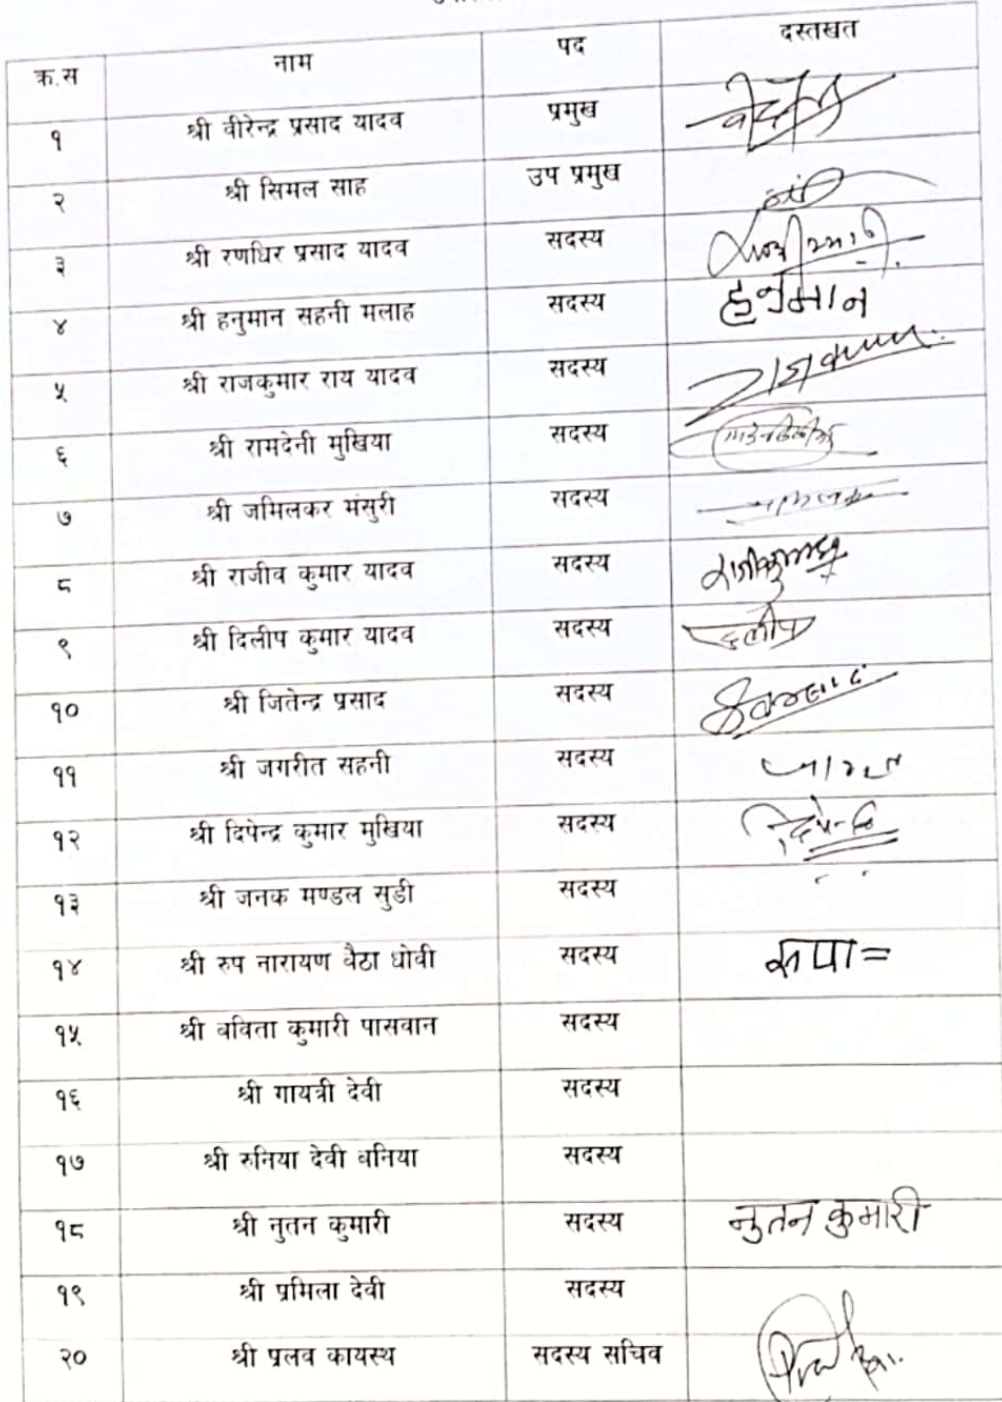 क्र.स नाम पद दस्तखत
१ श्री वीरेन्द्र प्रसाद यादव प्रमुख
२ श्री सिमल साह उप प्रमुख
३ श्री रणधिर प्रसाद यादव सदस्य
४ श्री हनुमान सहनी मलाह सदस्य हनुमान
५ श्री राजकुमार राय यादव सदस्य
६ श्री रामदेनी मुखिया सदस्य
७ श्री जमिलकर मंसुरी सदस्य
८ श्री राजीव कुमार यादव सदस्य
९ श्री दिलीप कुमार यादव सदस्य दलीप
१० श्री जितेन्द्र प्रसाद सदस्य
११ श्री जगरीत सहनी सदस्य
१२ श्री दिपेन्द्र कुमार मुखिया सदस्य
१३ श्री जनक मण्डल सुडी सदस्य
१४ श्री रुप नारायण वैठा धोवी सदस्य रुपा=
१५ श्री वविता कुमारी पासवान सदस्य
१६ श्री गायत्री देवी सदस्य
१७ श्री रुनिया देवी वनिया सदस्य
१८ श्री नुतन कुमारी सदस्य नुतन कुमारी
१९ श्री प्रमिला देवी सदस्य
२० श्री प्रलव कायस्थ सदस्य सचिव